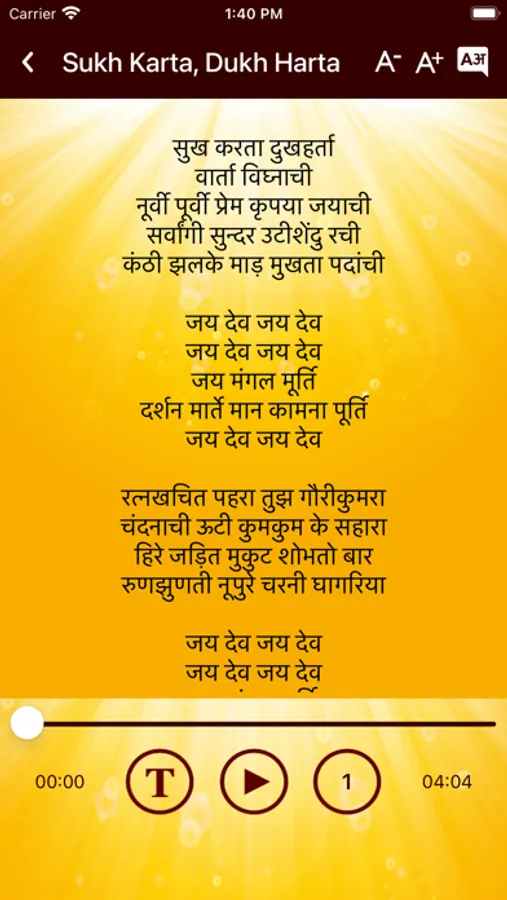 Carrier 1:40 PM
Sukh Karta, Dukh Harta A- A+ Aअ
सुख करता दुखहर्ता
वार्ता विघ्नाची
नूर्वी पूर्वी प्रेम कृपया जयाची
सर्वांगी सुन्दर उटीशेंदु रची
कंठी झलके माड़ मुखता पदांची
जय देव जय देव
जय देव जय देव
जय मंगल मूर्ति
दर्शन मार्ते मान कामना पूर्ति
जय देव जय देव
रत्नखचित पहरा तुझ गौरीकुमरा
चंदनाची ऊटी कुमकुम के सहारा
हिरे जड़ित मुकुट शोभतो बार
रुणझुणती नूपुरे चरनी घागरिया
जय देव जय देव
जय देव जय देव
00:00 T 1 04:04